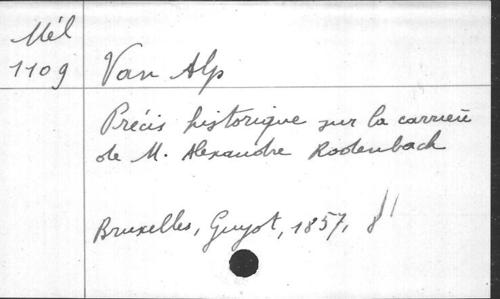 Mél
1109
Van Alp
Précis historique sur la carrière
de M. Alexandre Rodenbach
Bruxelles, Guyot, 1857, 8°